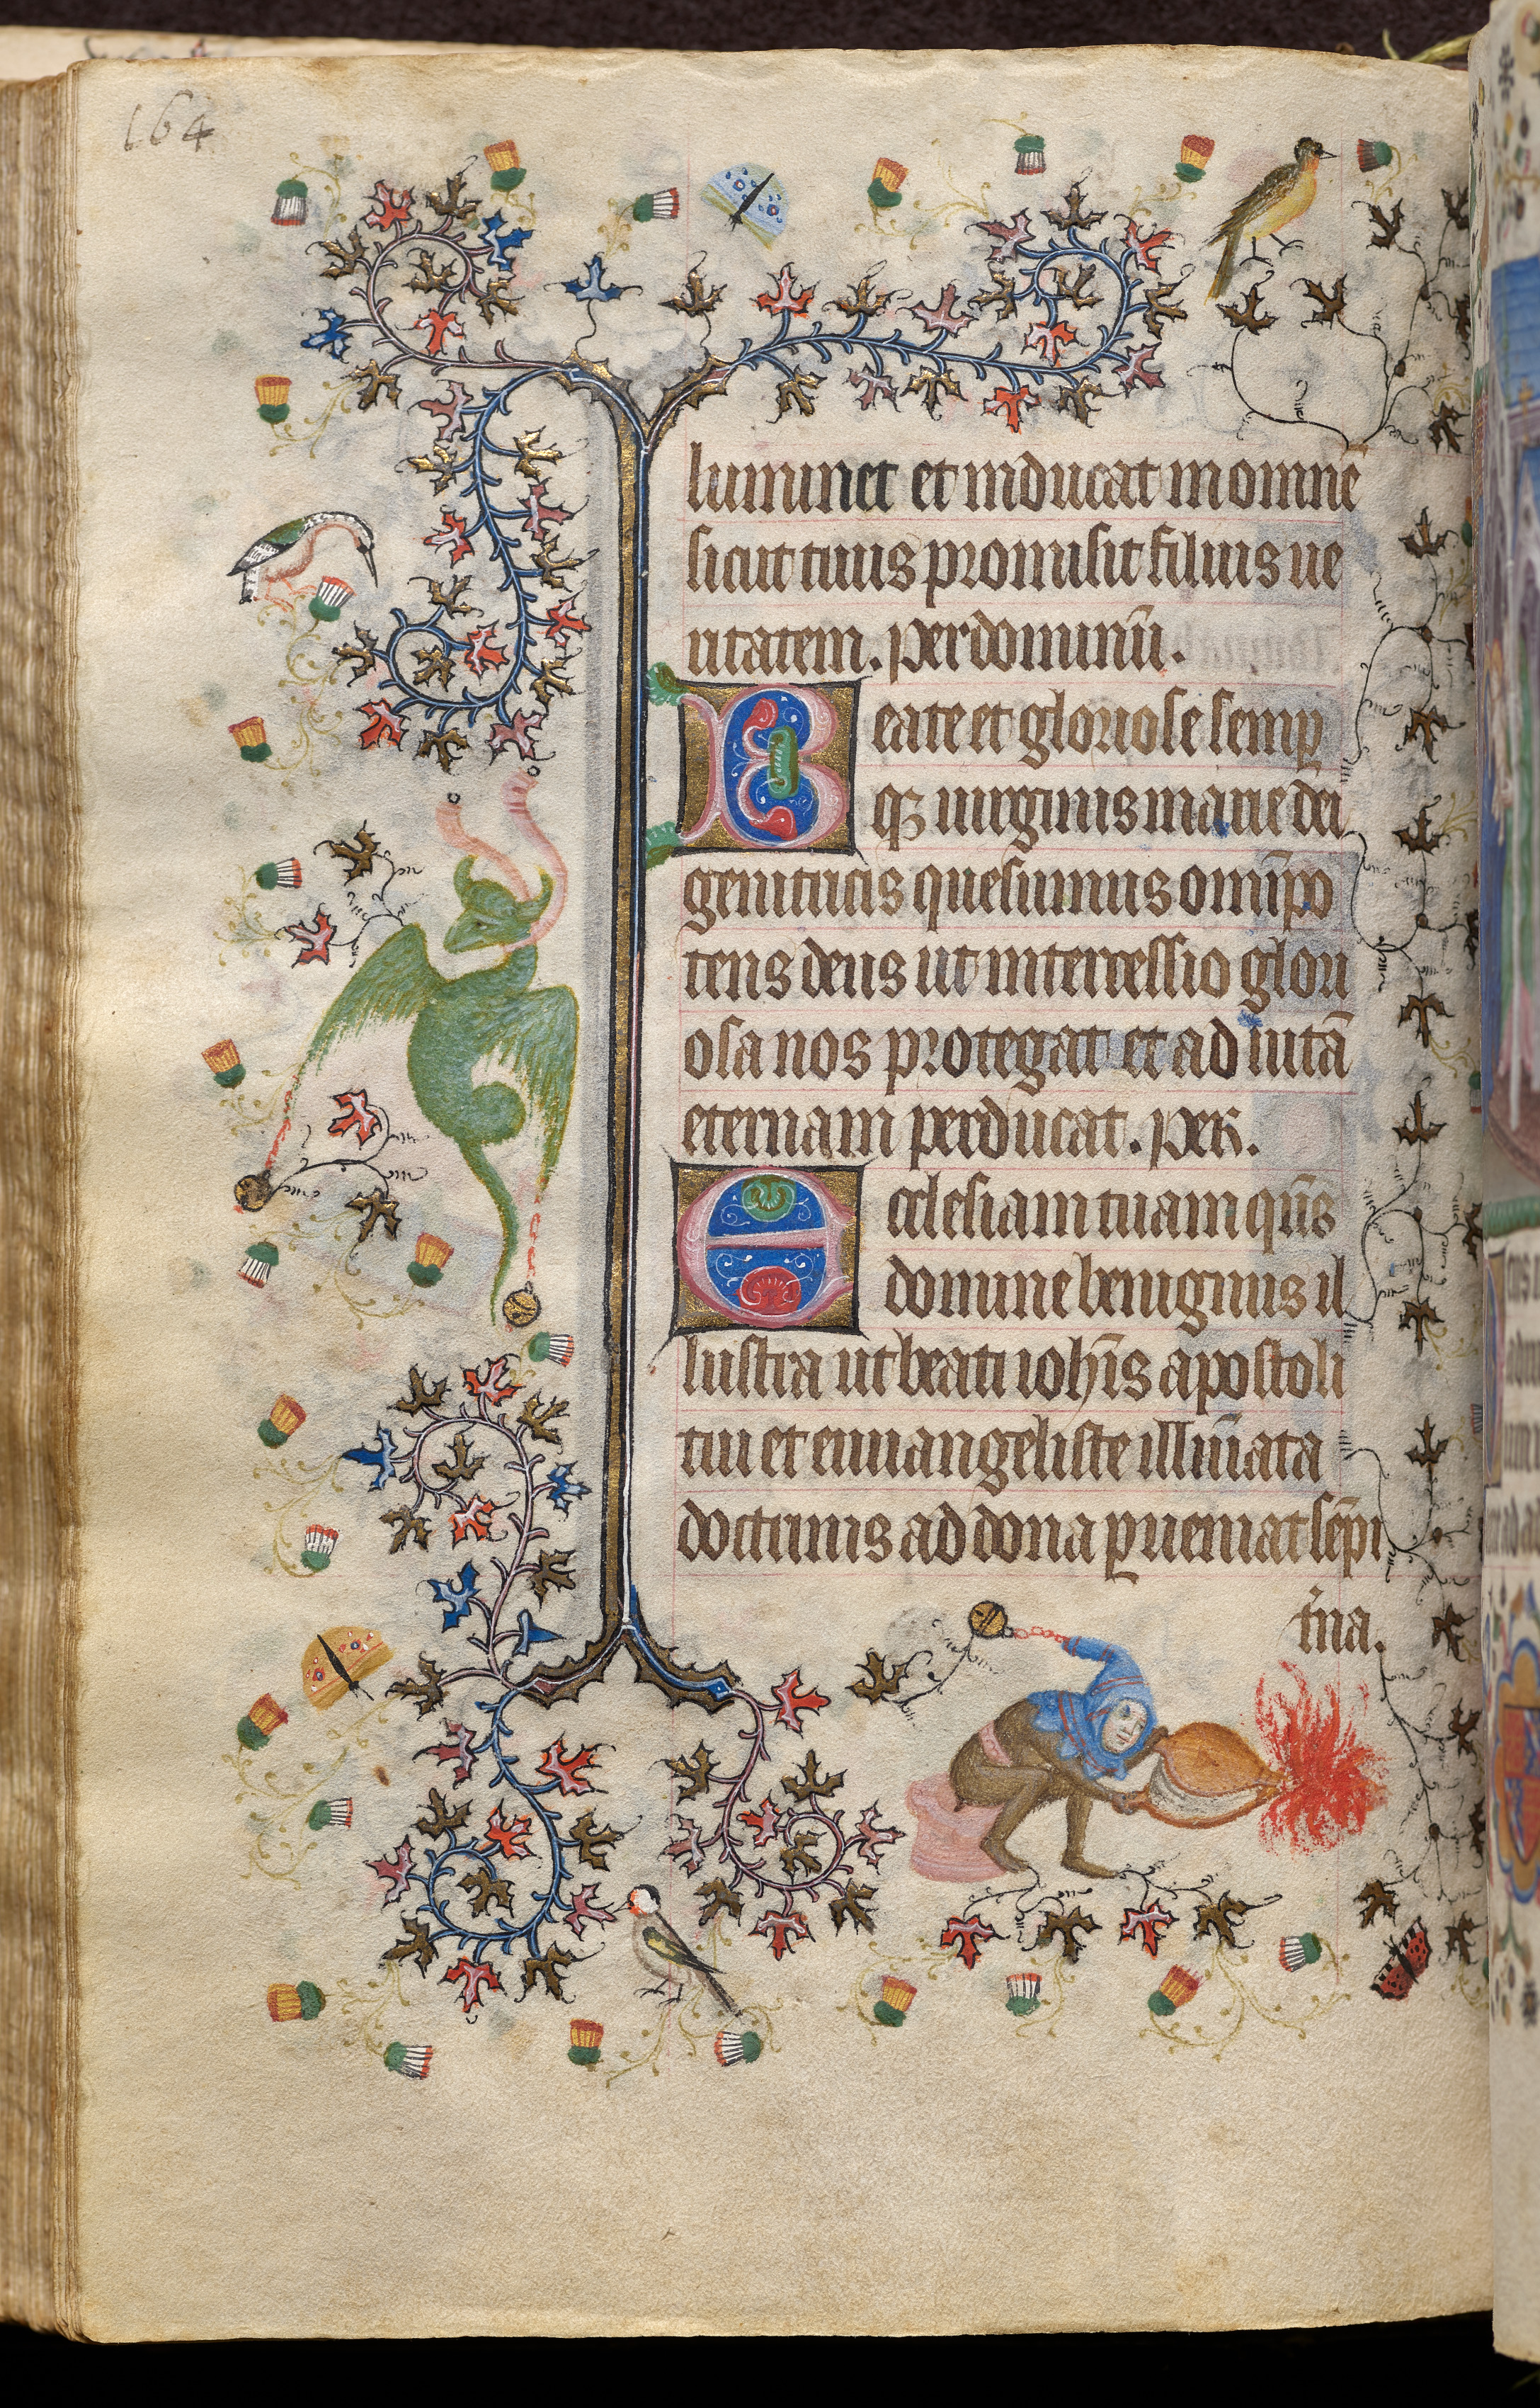 164
luminet et inducat in omnē
sicut tuus promisit filius ue
ritatem. Per dominū.
Beate et gloriose semp
qꝫ uirginis marie dei
genitricis quesumus omīpo
tens deus ut intercessio glori
osa nos protegat et ad uitā
eternam perducat. Per.
Ecclesiam tuam qūs
domine benignus il
lustra ut beati ioħis apostoli
tui et euuangeliste illūīata
doctrinis ad dona ꝑueniat sēpi
t̄na.